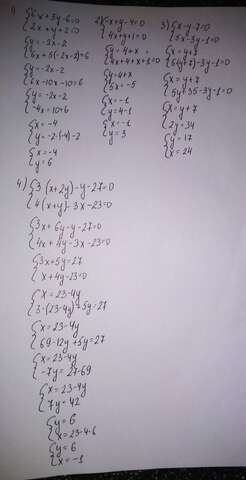 1) {6x + 5y - 6 = 0
{2x + y + 2 = 0
{y = -2x - 2
{6x + 5(-2x - 2) = 6
{y = -2x - 2
{6x - 10x - 10 = 6
{y = -2x - 2
{-4x = 10 + 6
{x = -4
{y = -2·(-4) - 2
{x = -4
{y = 6
2) {x + y - 4 = 0
{4x + y + 1 = 0
{y = 4 + x
{4x + 4 + x + 1 = 0
{y = 4 + x
{5x = -5
{x = -1
{y = 4 - 1
{x = -1
{y = 3
3) {x - y - 7 = 0
{5x - 3y - 1 = 0
{x = y + 7
{5(y + 7) - 3y - 1 = 0
{x = y + 7
{5y + 35 - 3y - 1 = 0
{x = y + 7
{2y = 34
{y = 17
{x = 24
4) {3(x + 2y) - y - 27 = 0
{4(x + y) - 3x - 23 = 0
{3x + 6y - y - 27 = 0
{4x + 4y - 3x - 23 = 0
{3x + 5y = 27
{x + 4y - 23 = 0
{x = 23 - 4y
{3·(23 - 4y) + 5y = 27
{x = 23 - 4y
{69 - 12y + 5y = 27
{x = 23 - 4y
{-7y = 27 - 69
{x = 23 - 4y
{7y = 42
{y = 6
{x = 23 - 4·6
{y = 6
{x = -1